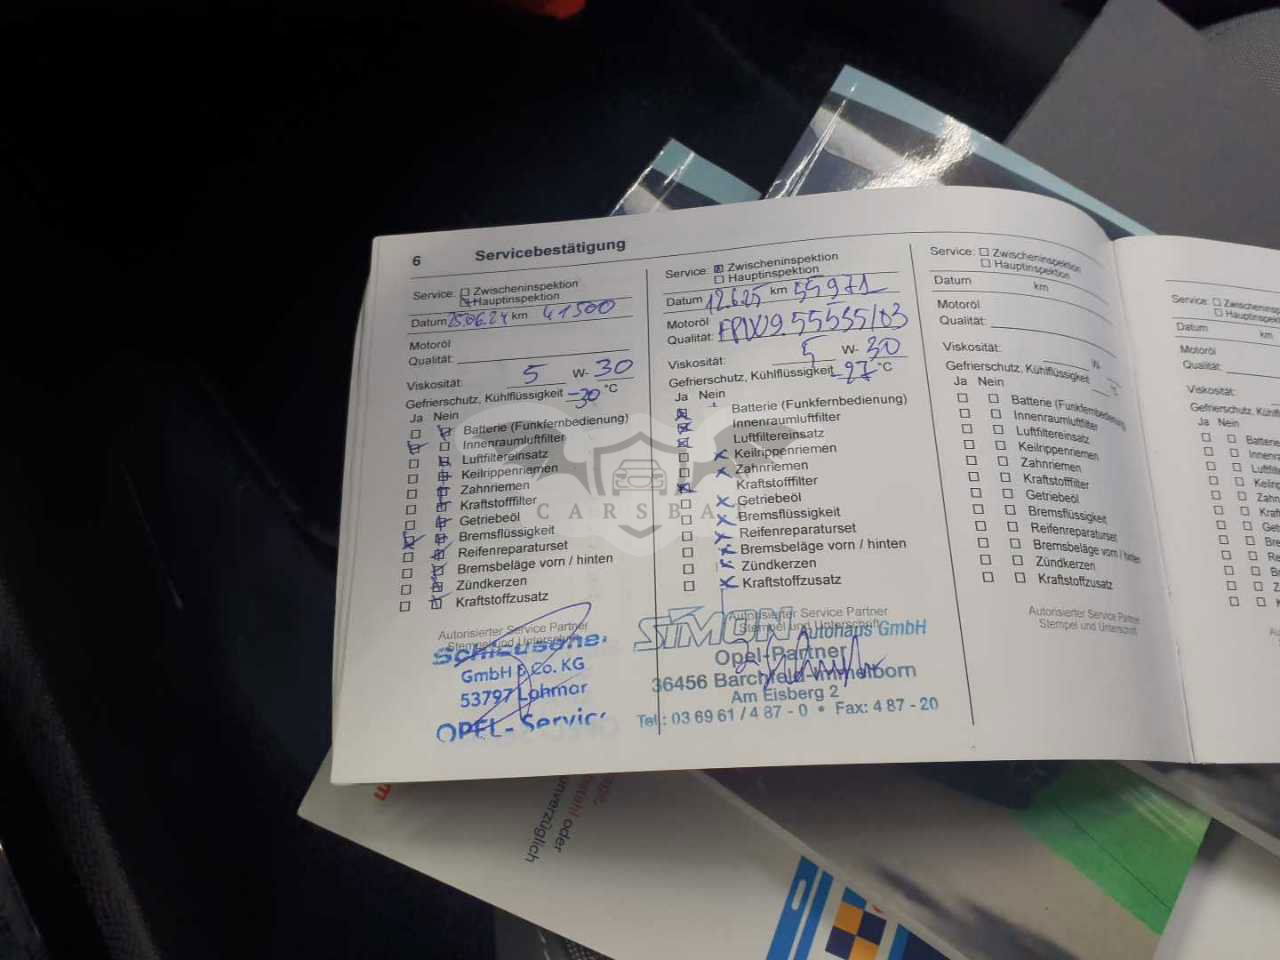 6 Servicebestätigung
Service: Zwischeninspektion
Hauptinspektion
Datum 25.06.24 km 41500
Motoröl
Qualität:
Viskosität: 5 W- 30
Gefrierschutz, Kühlflüssigkeit -30 °C
Ja Nein
Batterie (Funkfernbedienung)
Innenraumluftfilter
Luftfiltereinsatz
Keilrippenriemen
Zahnriemen
Kraftstofffilter
Getriebeöl
Bremsflüssigkeit
Reifenreparaturset
Bremsbeläge vorn / hinten
Zündkerzen
Kraftstoffzusatz
Autorisierter Service Partner
Stempel und Unterschrift
GmbH & Co. KG
53797 Lohmar
OPEL - Service
Service: Zwischeninspektion
Hauptinspektion
Datum 12.6.25 km 55971
Motoröl
Qualität: 9.55535/03
Viskosität: 5 W- 30
Gefrierschutz, Kühlflüssigkeit -27 °C
Ja Nein
Batterie (Funkfernbedienung)
Innenraumluftfilter
Luftfiltereinsatz
Keilrippenriemen
Zahnriemen
Kraftstofffilter
Getriebeöl
Bremsflüssigkeit
Reifenreparaturset
Bremsbeläge vorn / hinten
Zündkerzen
Kraftstoffzusatz
Autorisierter Service Partner
Stempel und Unterschrift
SIMON Autohaus GmbH
Opel-Partner
36456 Barchfeld-Immelborn
Am Eisberg 2
Tel.: 03 69 61 / 4 87 - 0 • Fax: 4 87 - 20
Service: Zwischeninspektion
Hauptinspektion
Datum km
Motoröl
Qualität:
Viskosität: W-
Gefrierschutz, Kühlflüssigkeit °C
Ja Nein
Batterie (Funkfernbedienung)
Innenraumluftfilter
Luftfiltereinsatz
Keilrippenriemen
Zahnriemen
Kraftstofffilter
Getriebeöl
Bremsflüssigkeit
Reifenreparaturset
Bremsbeläge vorn / hinten
Zündkerzen
Kraftstoffzusatz
Autorisierter Service Partner
Stempel und Unterschrift
Service: Zwischeninspektion
Hauptinspektion
Datum km
Motoröl
Qualität:
Viskosität:
Gefrierschutz, Kühlflü
Ja Nein
CARSBA
oder
unverzüglich